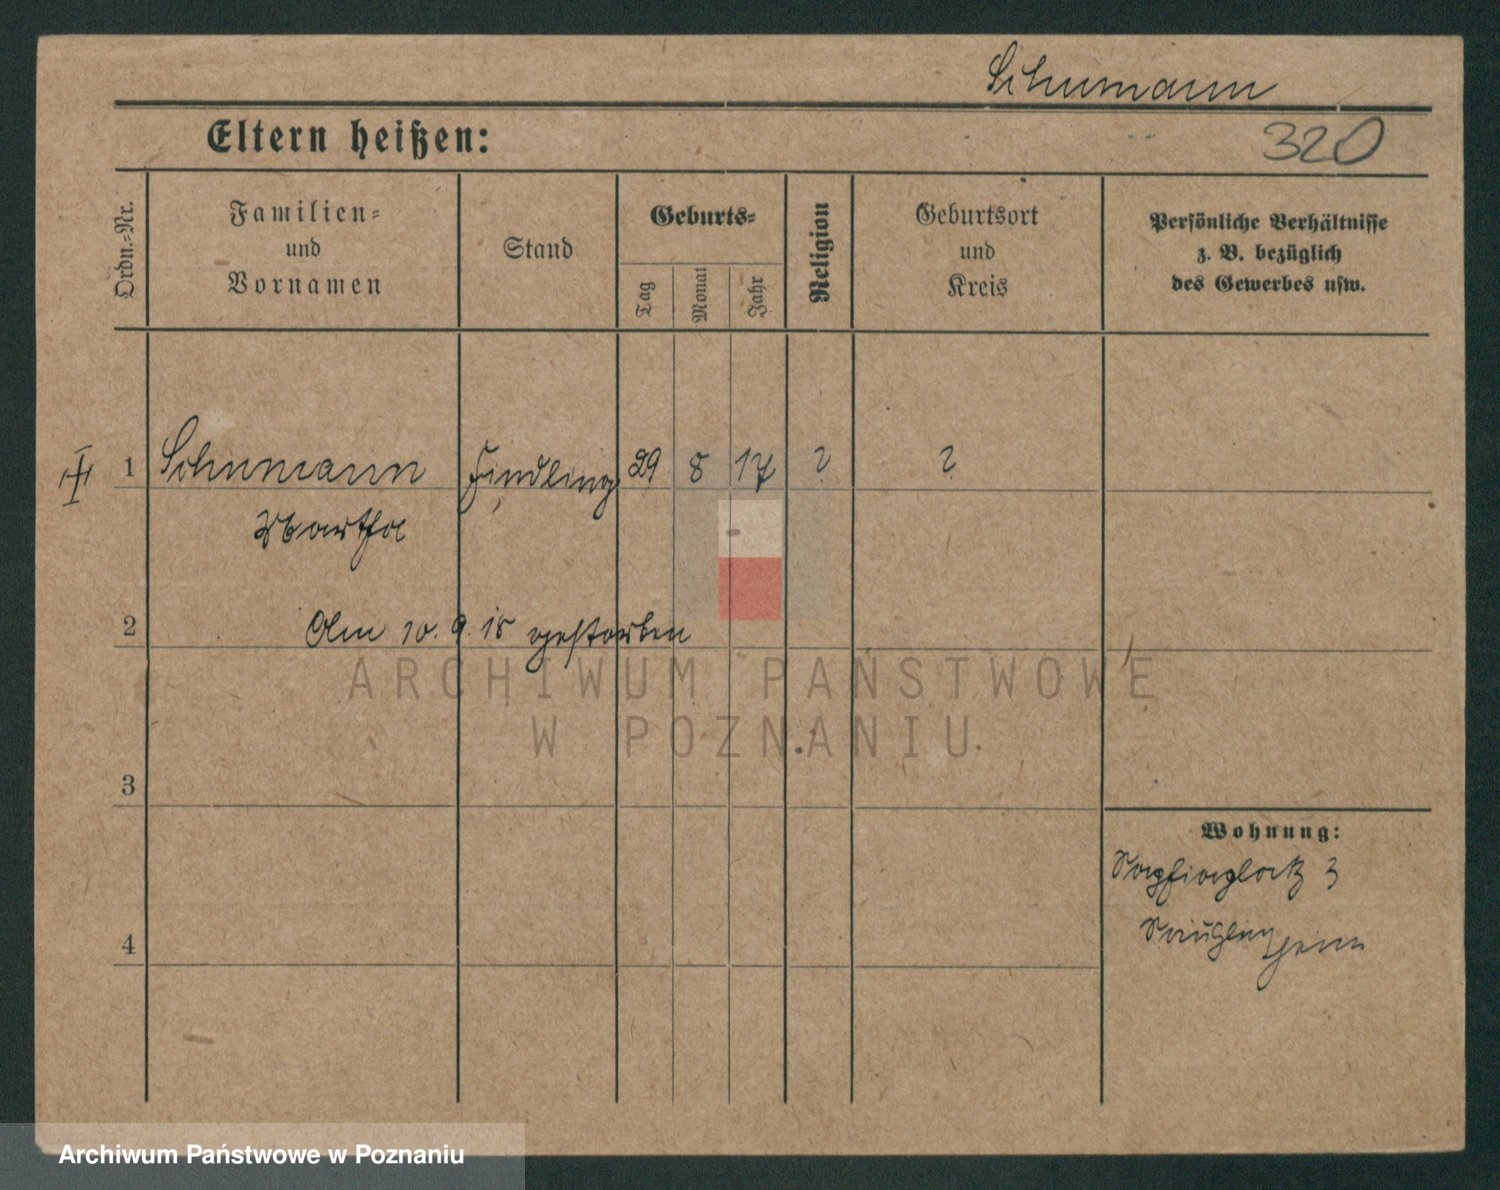 Schumann
Eltern heißen:
320
Ordn.-Nr.
Familien-
und
Vornamen
Stand
Geburts-
Tag
Monat
Jahr
Religion
Geburtsort
und
Kreis
Persönliche Verhältnisse
z. B. bezüglich
des Gewerbes usw.
1 Schumann Findling 29 8 17 ? ?
Martha
2
Am 10. 9. 18 gestorben
ARCHIWUM PAŃSTWOWE
W POZNANIU
3
Wohnung:
Sapiehaplatz 3
Säuglingsheim
4
Archiwum Państwowe w Poznaniu